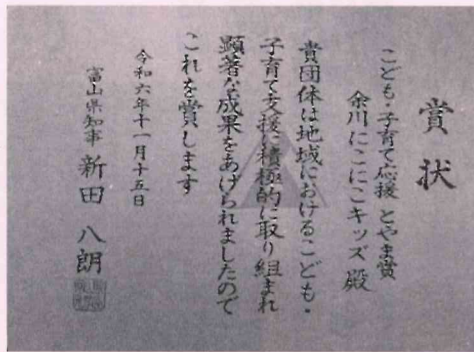 賞状
こども・子育て応援とやま賞
余川にこにこキッズ 殿
貴団体は地域におけるこども・
子育て支援に積極的に取り組まれ
顕著な成果をあげられましたので
これを賞します
令和六年十一月十五日
富山県知事 新田 八朗